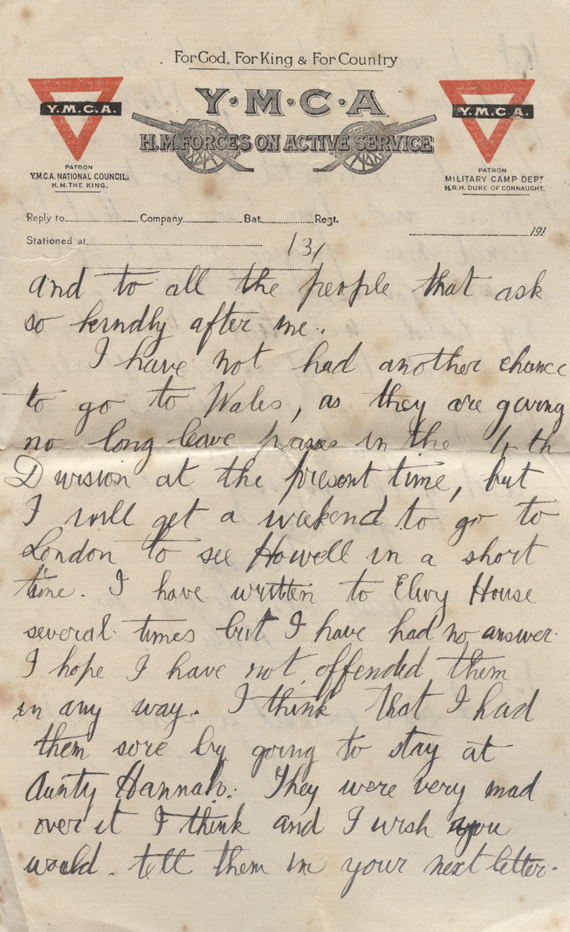 For God, For King & For Country
Y·M·C·A
H.M. FORCES ON ACTIVE SERVICE
Y.M.C.A.
PATRON
Y.M.C.A. NATIONAL COUNCIL.
H.M. THE KING.
Y.M.C.A.
PATRON
MILITARY CAMP DEPT
H.R.H. DUKE OF CONNAUGHT.
Reply to Company Bat. Regt.
Stationed at 191
/3/
and to all the people that ask
so kindly after me.
I have not had another chance
to go to Wales, as they are giving
no long leave passes in the 4th
Division at the present time, but
I will get a weekend to go to
London to see Howell in a short
time. I have written to Elwy House
several times but I have had no answer.
I hope I have not offended them
in any way. I think that I had
them sore by going to stay at
Aunty Hannah. They were very mad
over it I think and I wish you
would tell them in your next letter.